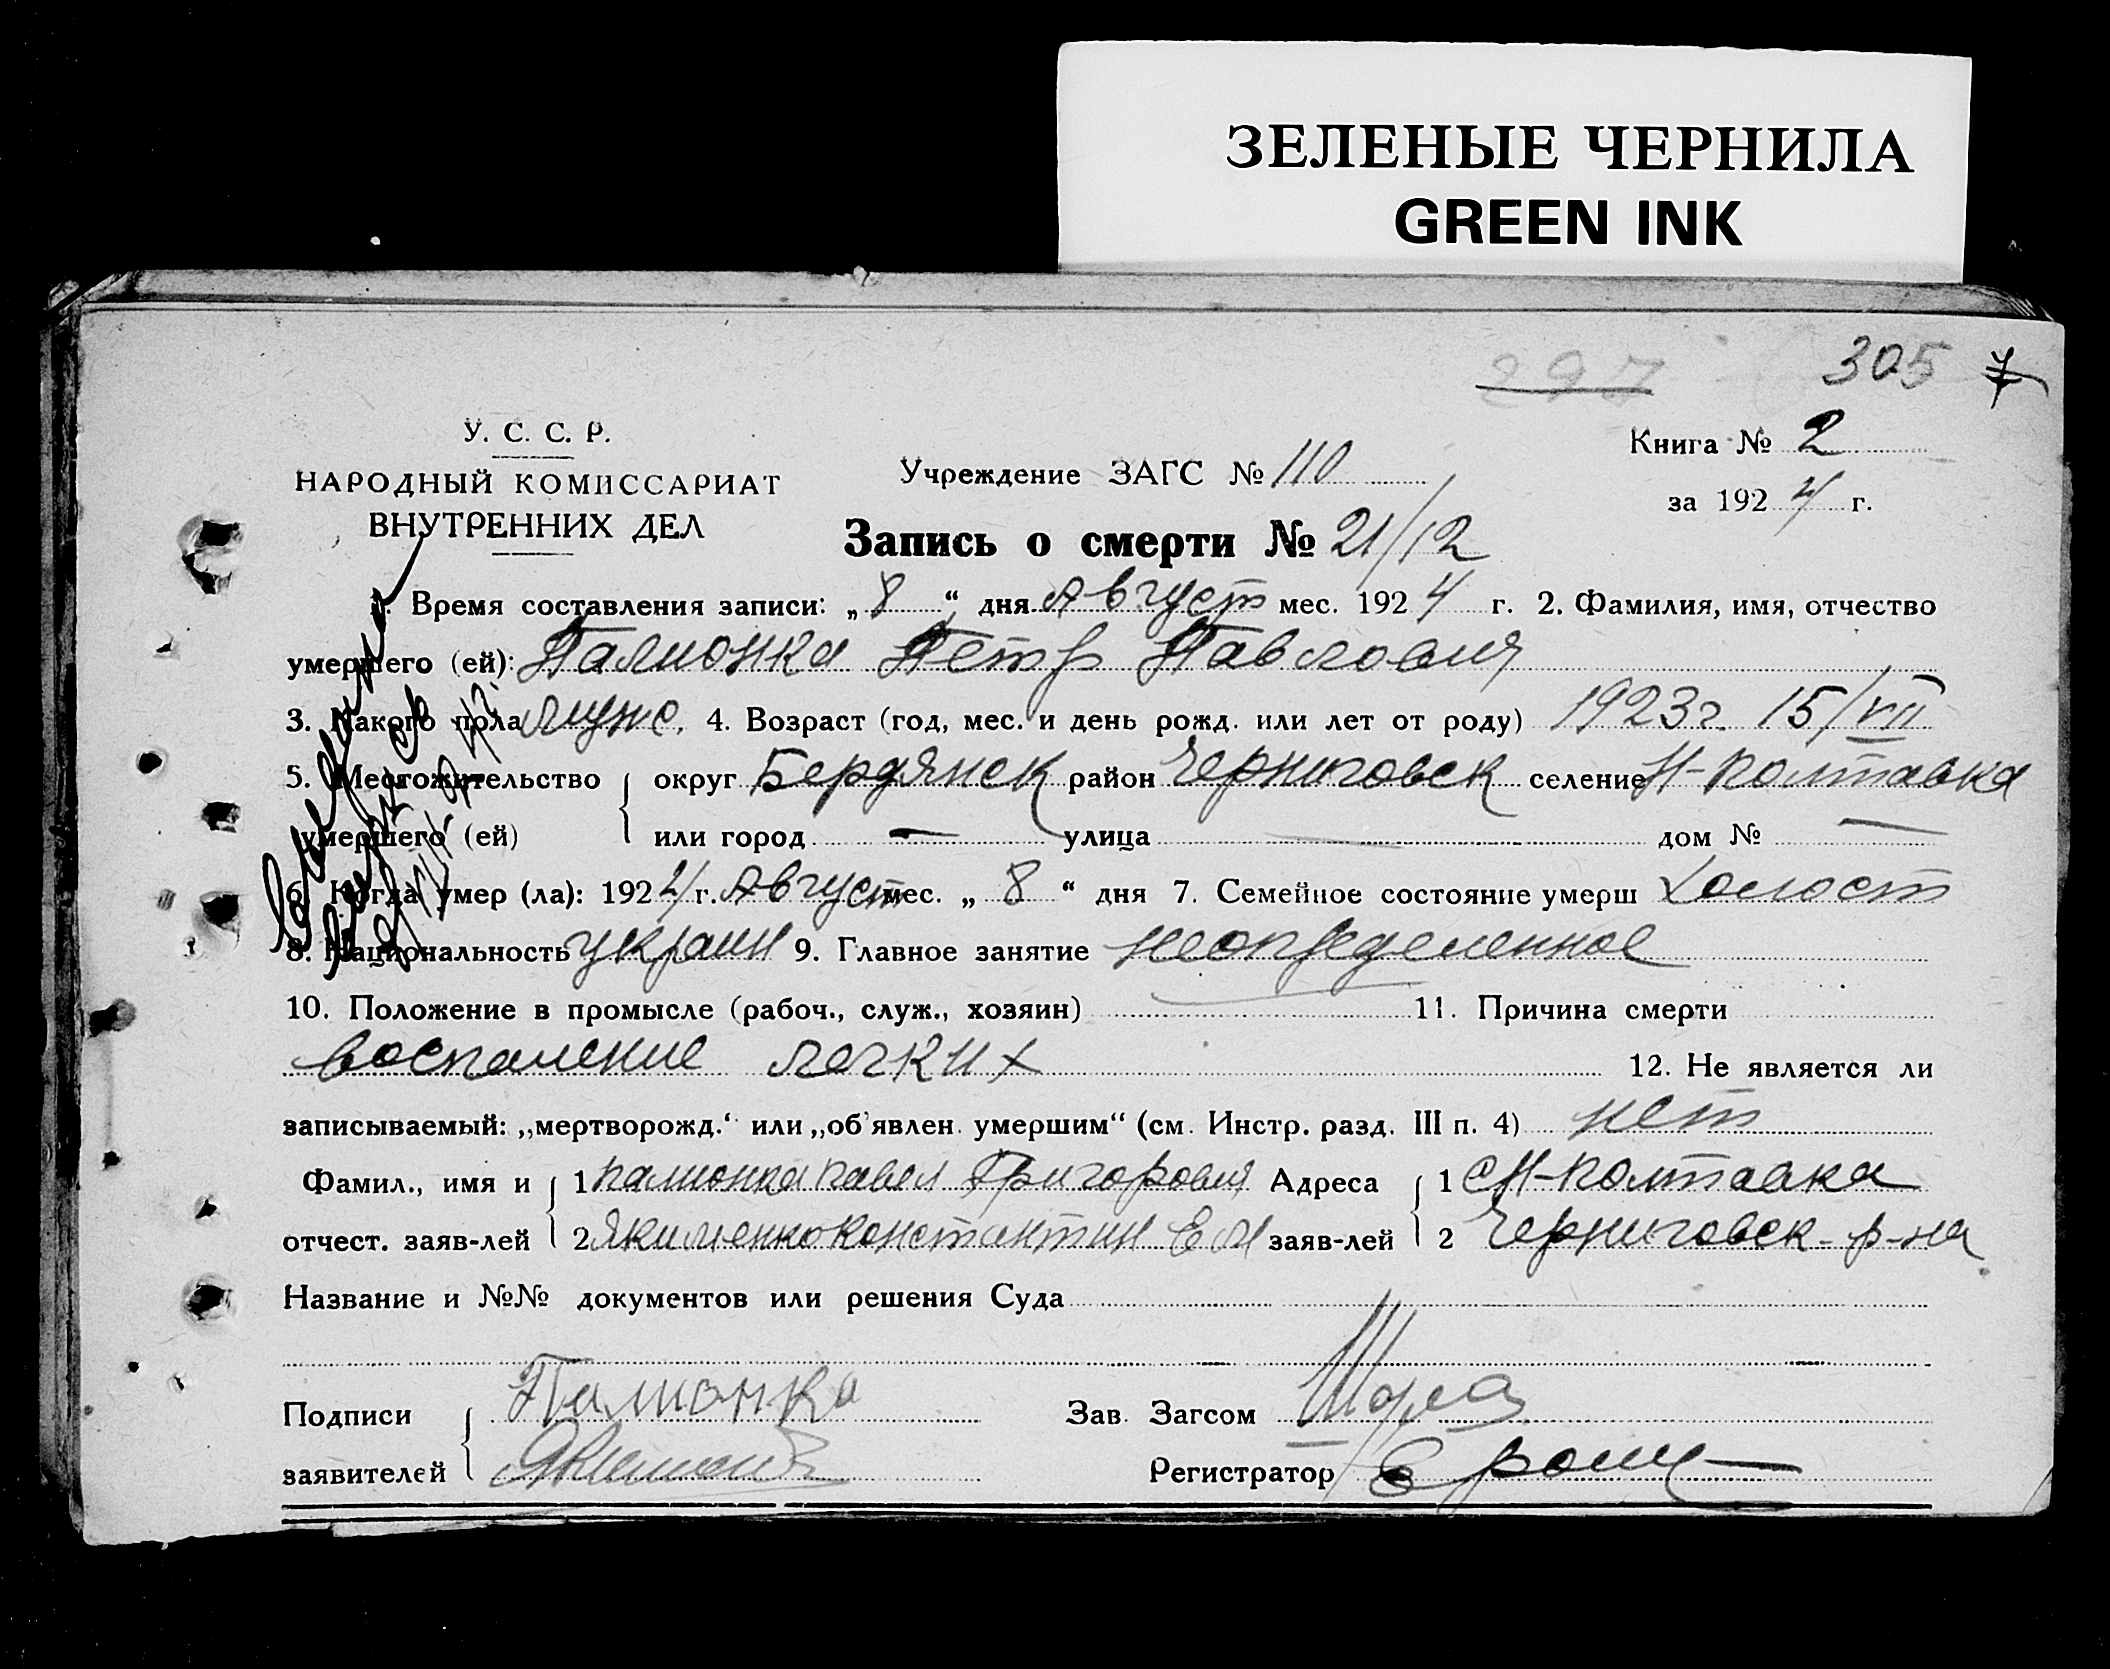 ЗЕЛЕНЫЕ ЧЕРНИЛА
GREEN INK
297 305
У. С. С. Р.
НАРОДНЫЙ КОМИССАРИАТ
ВНУТРЕННИХ ДЕЛ
Учреждение ЗАГС № 110
Книга № 2
за 1924 г.
Запись о смерти № 21/12
1. Время составления записи: „8“ дня Август мес. 1924 г. 2. Фамилия, имя, отчество
умершего (ей): Палионка Петр Павловия
3. Какого пола мужс. 4. Возраст (год, мес. и день рожд. или лет от роду) 1923 г. 15/VII
5. Местожительство округ Бердянск район Черниговск селение Н-Полтавка
умершего (ей) или город — улица — дом № —
6. Когда умер (ла): 1924 г. Август мес. „8“ дня 7. Семейное состояние умерш Холост
8. Национальность украин 9. Главное занятие неопределенное
10. Положение в промысле (рабоч., служ., хозяин) 11. Причина смерти
воспаление легких 12. Не является ли
записываемый: „мертворожд.“ или „об'явлен умершим“ (см. Инстр. разд. III п. 4) нет
Фамил., имя и 1 Палионка Павел Григоровия Адреса 1 с Н-Полтавка
отчест. заяв-лей 2 Якименко Константин Е М заяв-лей 2 Черниговск р-на
Название и №№ документов или решения Суда
Подписи Палионка Зав. Загсом
заявителей Регистратор